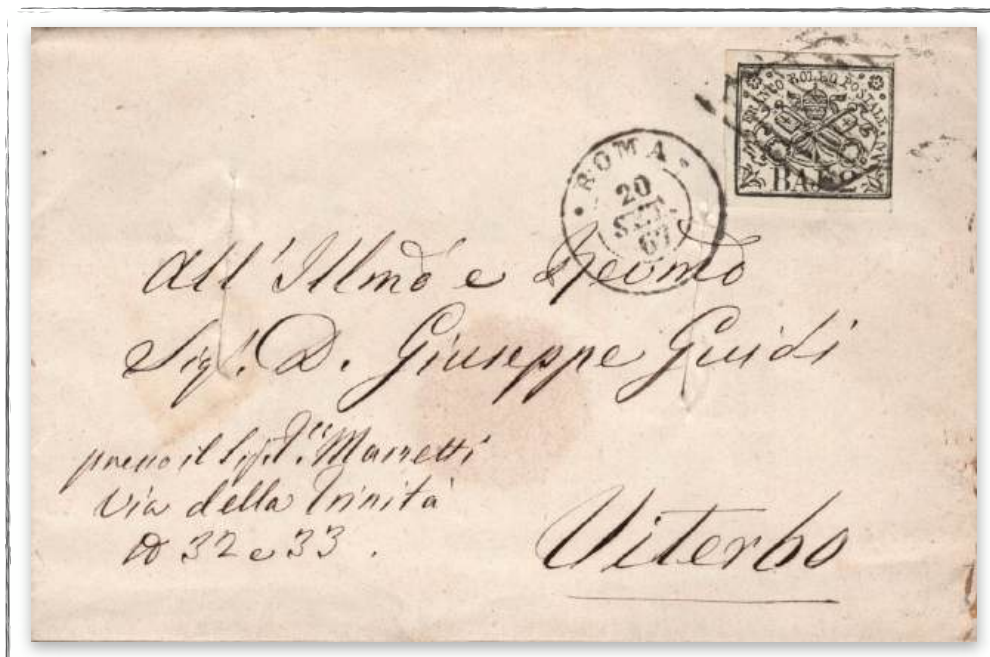 FRANCO BOLLO POSTALE
BAJ
ROMA
20
SET.
67
All' Illmo e Revmo
Sig. D. Giuseppe Guidi
presso il Sig.
via della Trinità
32 e 33.
Viterbo